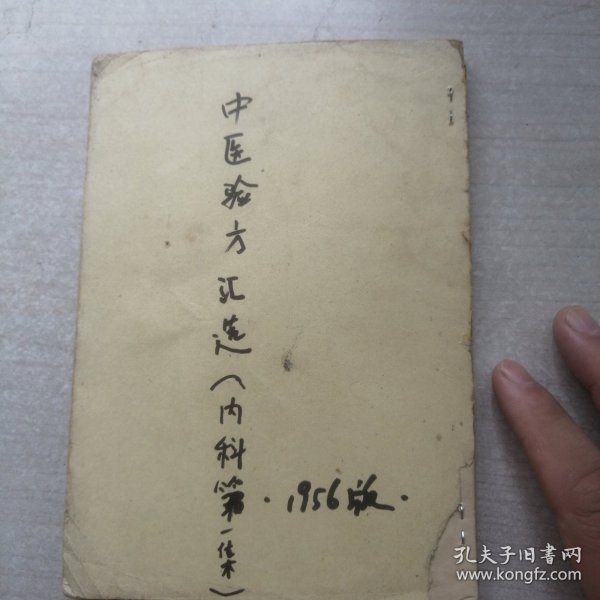 中医验方汇选(内科第一集)
·1956版·
孔夫子旧书网
www.kongfz.com